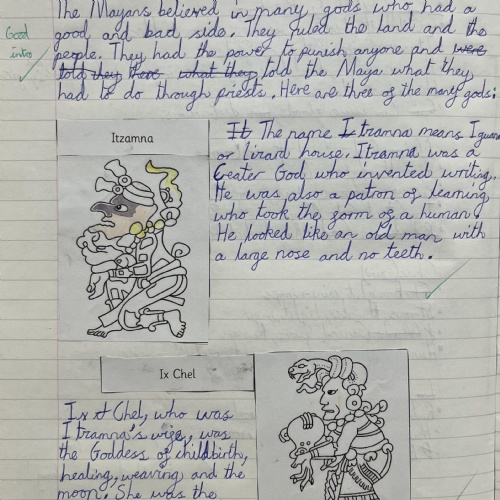 The Mayans believed in many gods who had a
good and bad side. They ruled the land and the
people. They had the power to punish anyone and were
told they what they told the Maya what they
had to do through priests. Here are three of the many gods:
Good
intro
Itzamna
It The name Itzamna means Iguana
or lizard house. Itzamna was a
Creater God who invented writing.
He was also a patron of learning
who took the form of a human.
He looked like an old man with
a large nose and no teeth.
Ix Chel
Ix Chel, who was
Itzamna's wife, was
the Goddess of childbirth,
healing, weaving and the
moon. She was the